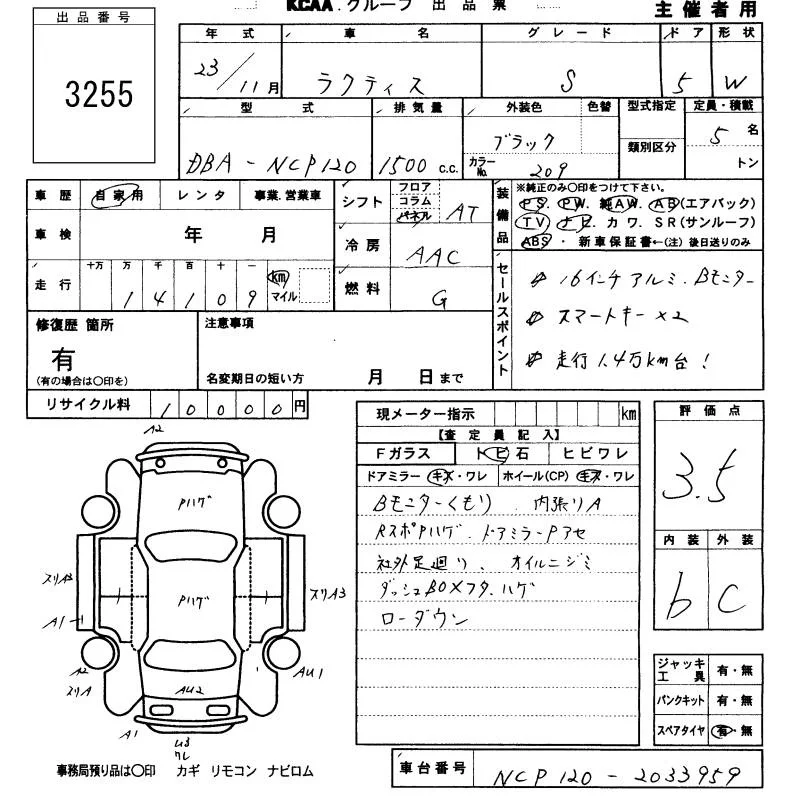 KCAA．グループ 出品票
主催者用
出品番号
3255
年式 車名 グレード ドア 形状
23/11月 ラクティス S 5 W
型式 排気量 外装色 色替 型式指定 定員・積載
DBA-NCP120 1500 c.c. ブラック 類別区分 5名
カラーNo. 209 トン
車歴 自家用 レンタ 事業.営業車
シフト フロア コラム パネル AT
装備品 ※純正のみ○印をつけて下さい。
PS. PW. 純AW. AB(エアバック)
TV ナビ. カワ. SR(サンルーフ)
ABS・新車保証書←(注) 後日送りのみ
車検 年 月
冷房 AAC
走行 十万 万 千 百 十 一
1 4 1 0 9 km マイル
燃料 G
セールスポイント
16インチアルミ. Bモニター
スマートキー×2
走行1.4万km台!
修復歴 箇所
有
(有の場合は○印を)
注意事項
名変期日の短い方 月 日まで
リサイクル料 10000円
現メーター指示 km
【査定員記入】
Fガラス トビ石 ヒビワレ
ドアミラー キズ・ワレ ホイール(CP) キズ・ワレ
Bモニターくもり. 内張りA
RスポPハゲ. ドアミラーPアセ
社外足廻り、オイルニジミ
ダッシュBOXフタ.ハゲ
ローダウン
評価点
3.5
内装 外装
b C
A2
Pハゲ
スリA3
Pハゲ
スリA3
A1
A2
スリA
AU2
AU1
A1
U3
ワレ
ジャッキ工具 有・無
パンクキット 有・無
スペアタイヤ 有・無
事務局預り品は○印 カギ リモコン ナビロム
車台番号 NCP120-2033959